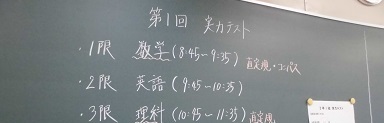 第1回 実力テスト
・1限 数学(8:45~9:35) 直定規・コンパス
・2限 英語(9:45~10:35)
・3限 理科(10:45~11:35) 直定規